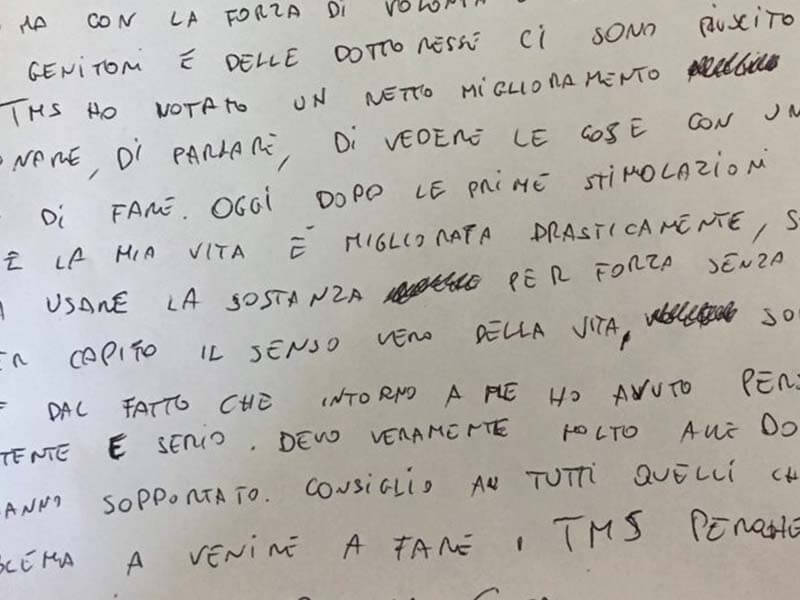 MA CON LA FORZA DI VOLONTÀ
GENITORI E DELLE DOTTORESSE CI SONO RIUSCITO
TMS HO NOTATO UN NETTO MIGLIORAMENTO
ONARE, DI PARLARE, DI VEDERE LE COSE CON UN
DI FARE. OGGI DOPO LE PRIME STIMOLAZIONI
E LA MIA VITA È MIGLIORATA DRASTICAMENTE, S
A USARE LA SOSTANZA PER FORZA SENZA
ER CAPITO IL SENSO VERO DELLA VITA, SO
E DAL FATTO CHE INTORNO A ME HO AVUTO PERS
TENTE E SERIO. DEVO VERAMENTE MOLTO ALLE DO
ANNO SOPPORTATO. CONSIGLIO A TUTTI QUELLI CH
BLEMA A VENIRE A FARE TMS PERCHE